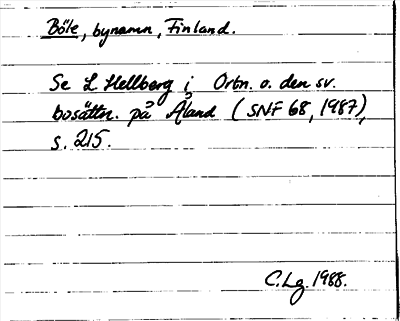 Böle, bynamn, Finland.
Se L Hellberg i Ortn. o. den sv.
bosättn. på Åland (SNF 68, 1987),
s. 215.
C.Lg. 1988.